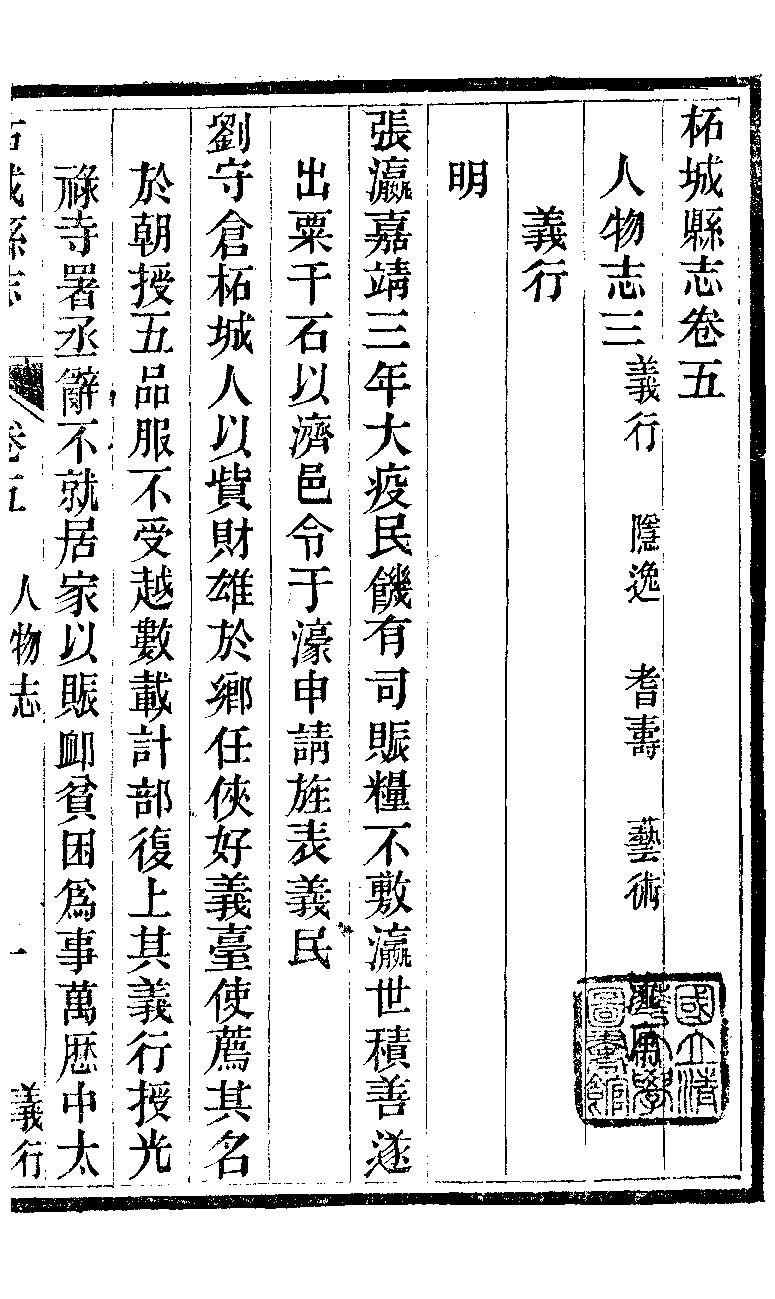 柘城縣志卷五
人物志三 義行 隱逸 耆壽 藝術 流寓
義行
明
張瀛嘉靖三年大疫民饑有司賑糧不敷瀛世積善遂
出粟千石以濟邑令于濠申請旌表義民
劉守倉柘城人以貲財雄於鄉任俠好義臺使薦其名
於朝授五品服不受越數載計部復上其義行授光
祿寺署丞辭不就居家以賑卹貧困爲事萬歷中太
柘城縣志 卷五 人物志 一 義行
國立清華大學圖書館